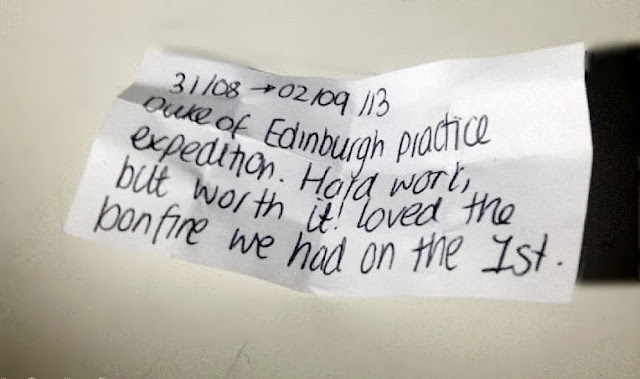 31/08 → 02/09/13
Duke of Edinburgh practice
expedition. Hard work,
but worth it! loved the
bonfire we had on the 1st.